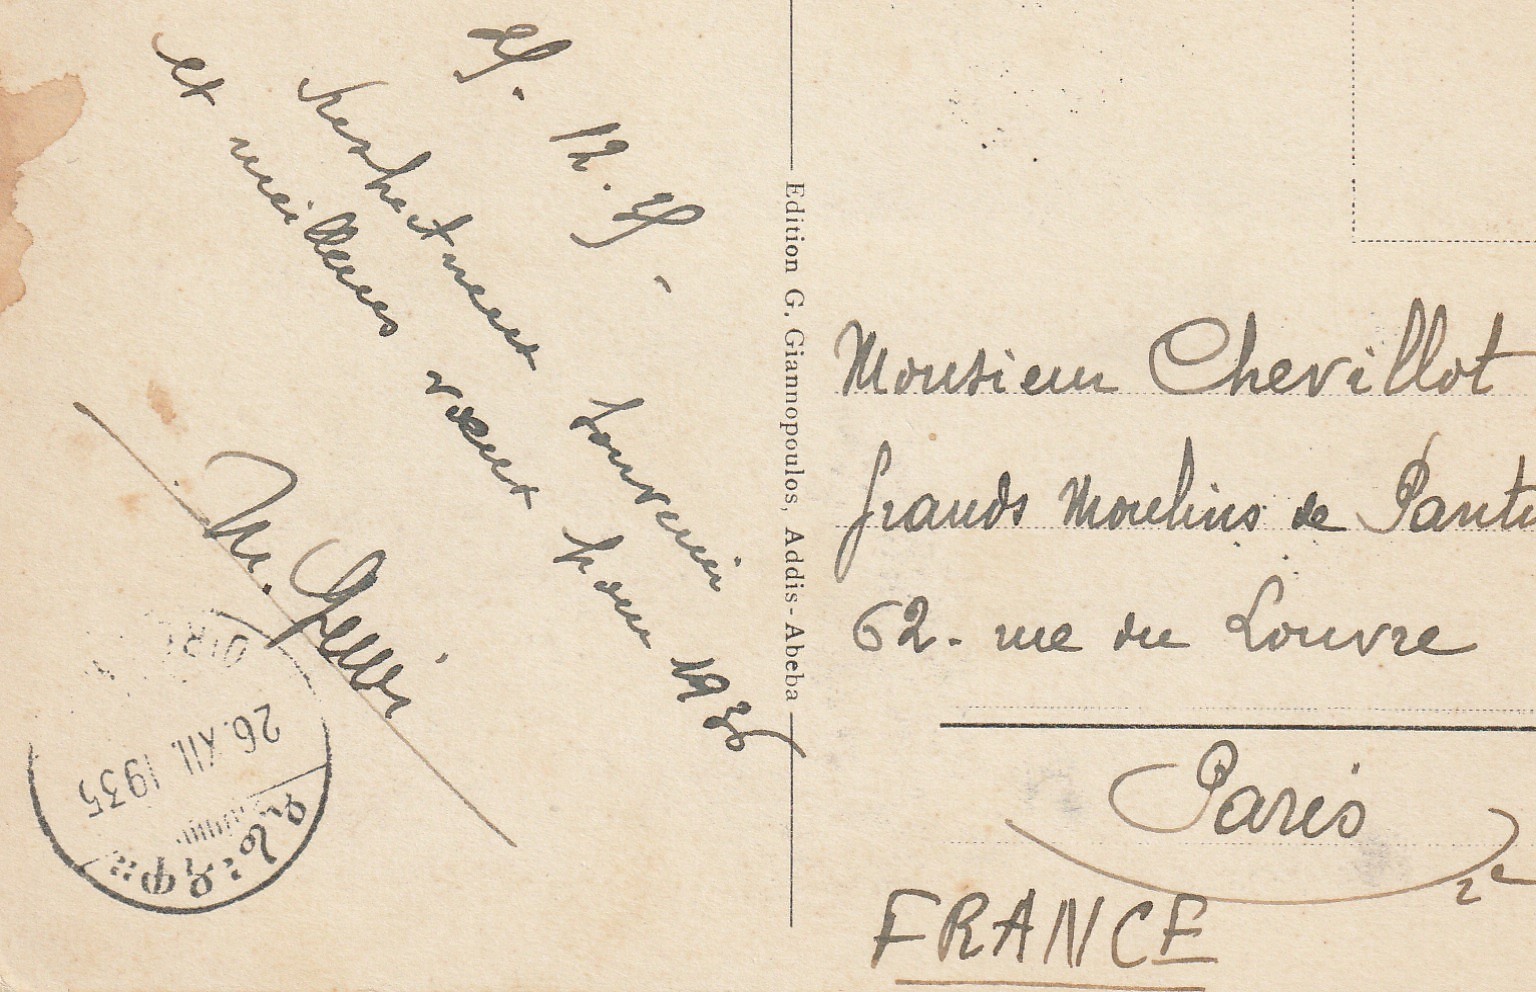 25. 12. 35.
Respectueux souvenir
et meilleurs vœux pour 1936
Edition G. Giannopoulos, Addis-Abeba
Monsieur Chevillot
Grands Moulins de
62. rue du Louvre
Paris
2e
FRANCE
DIR
26.XII.1935
ድሬ፡ዳዋ።